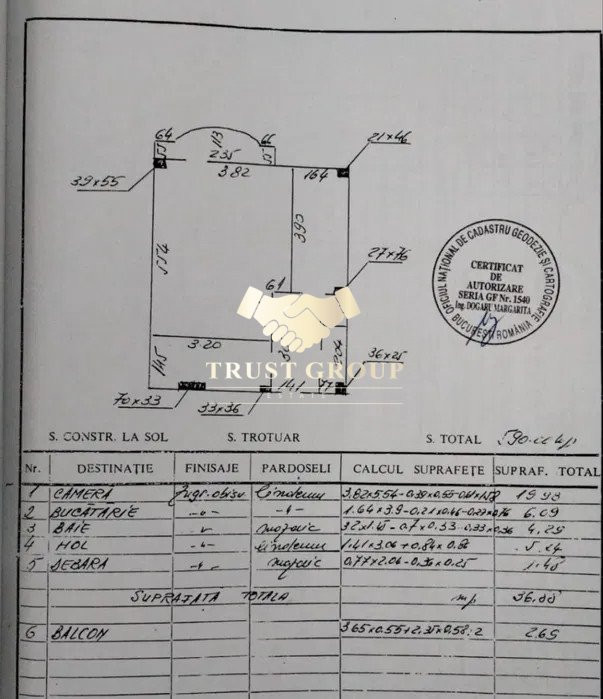 64
113
66
21x46
55
235
55
3.82
164
39x55
390
554
27x76
61
OFICIUL NAȚIONAL DE CADASTRU GEODEZIE ȘI CARTOGRAFIE
CERTIFICAT
DE
AUTORIZARE
SERIA GF Nr. 1540
Ing. DOGARU MARGARITA
BUCUREȘTI ROMÂNIA
3.20
145
204
36x25
TRUST GROUP
70x33
33x36
141
77
S. CONSTR. LA SOL S. TROTUAR S. TOTAL
Nr. DESTINAȚIE FINISAJE PARDOSELI CALCUL SUPRAFEȚE SUPRAF. TOTAL
1 CAMERĂ linoleum 3.82x5.54-0.39x0.55 19.93
2 BUCĂTĂRIE -"- -"- 1.64x3.9-0.21x0.46-0.27x0.76 6.09
3 BAIE -"- mozaic 3.2x1.45-0.7x0.33-0.33x0.36 4.29
4 HOL -"- linoleum 1.41x3.06+0.84x0.86
5 DEBARA -"- mozaic 0.77x2.06-0.36x0.25 1.48
SUPRAFAȚA TOTALĂ mp
6 BALCON 3.65x0.55+2.35x0.58:2 2.65